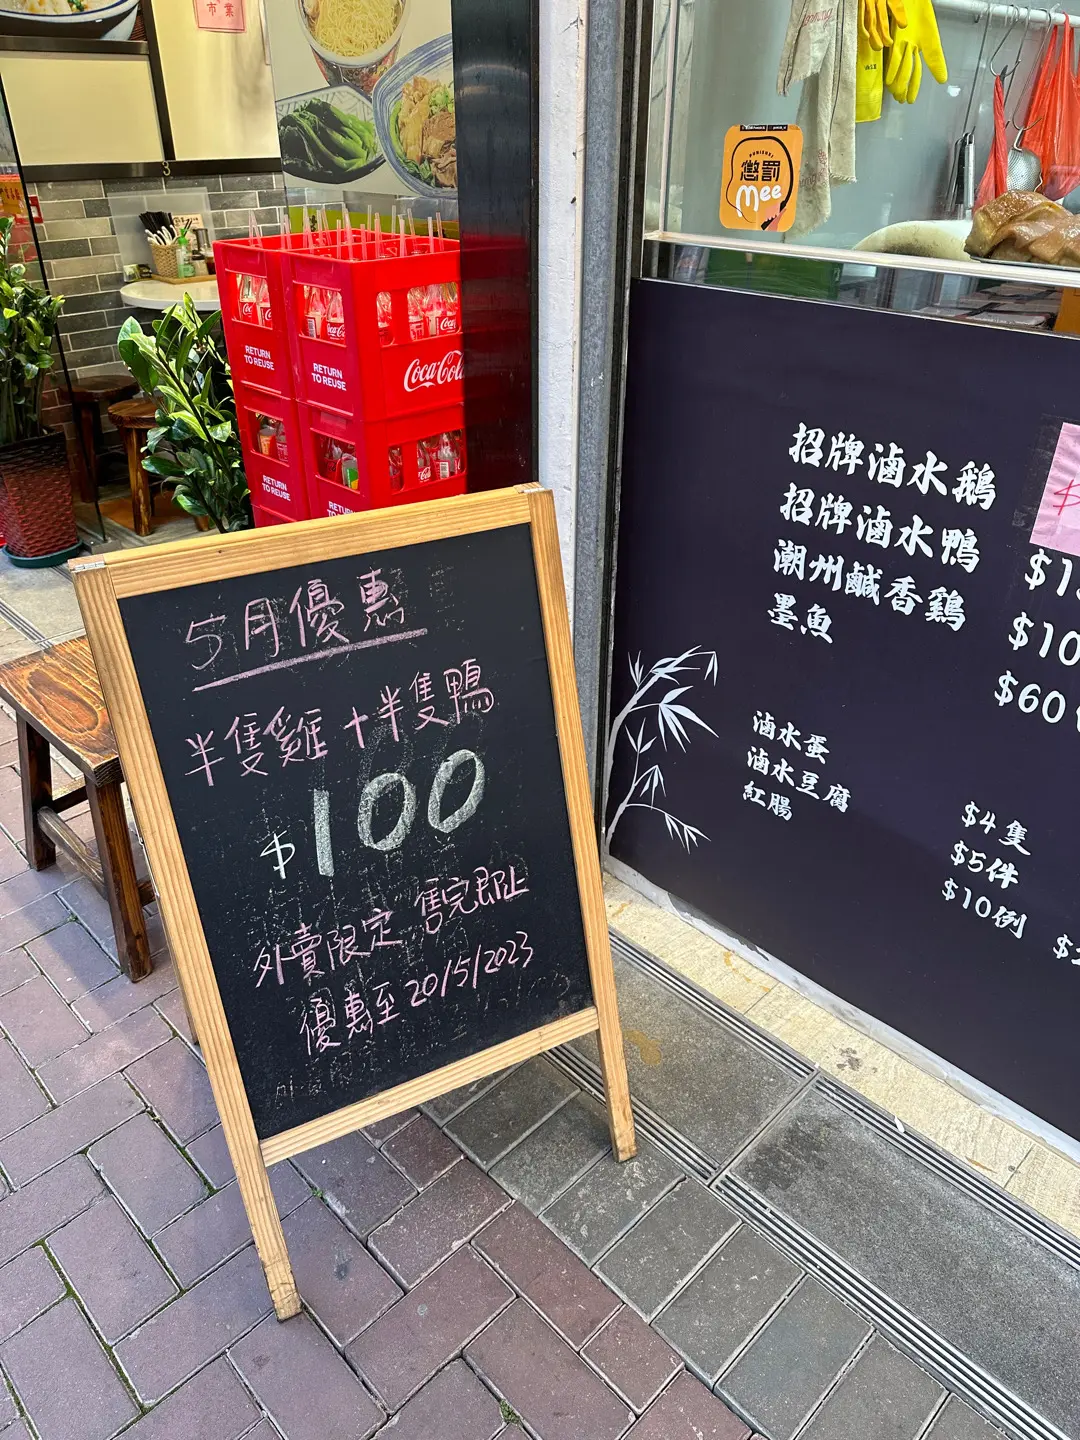 市業
RETURN
TO REUSE
RETURN
TO REUSE
Coca-Cola
RETURN
TO REUSE
懲罰
Mee
5月優惠
半隻雞+半隻鴨
$100
外賣限定 售完即止
優惠至20/5/2023
招牌滷水鵝
招牌滷水鴨
潮州鹹香鷄
墨魚
$10
$60
滷水蛋
滷水豆腐
紅腸
$4隻
$5件
$10例